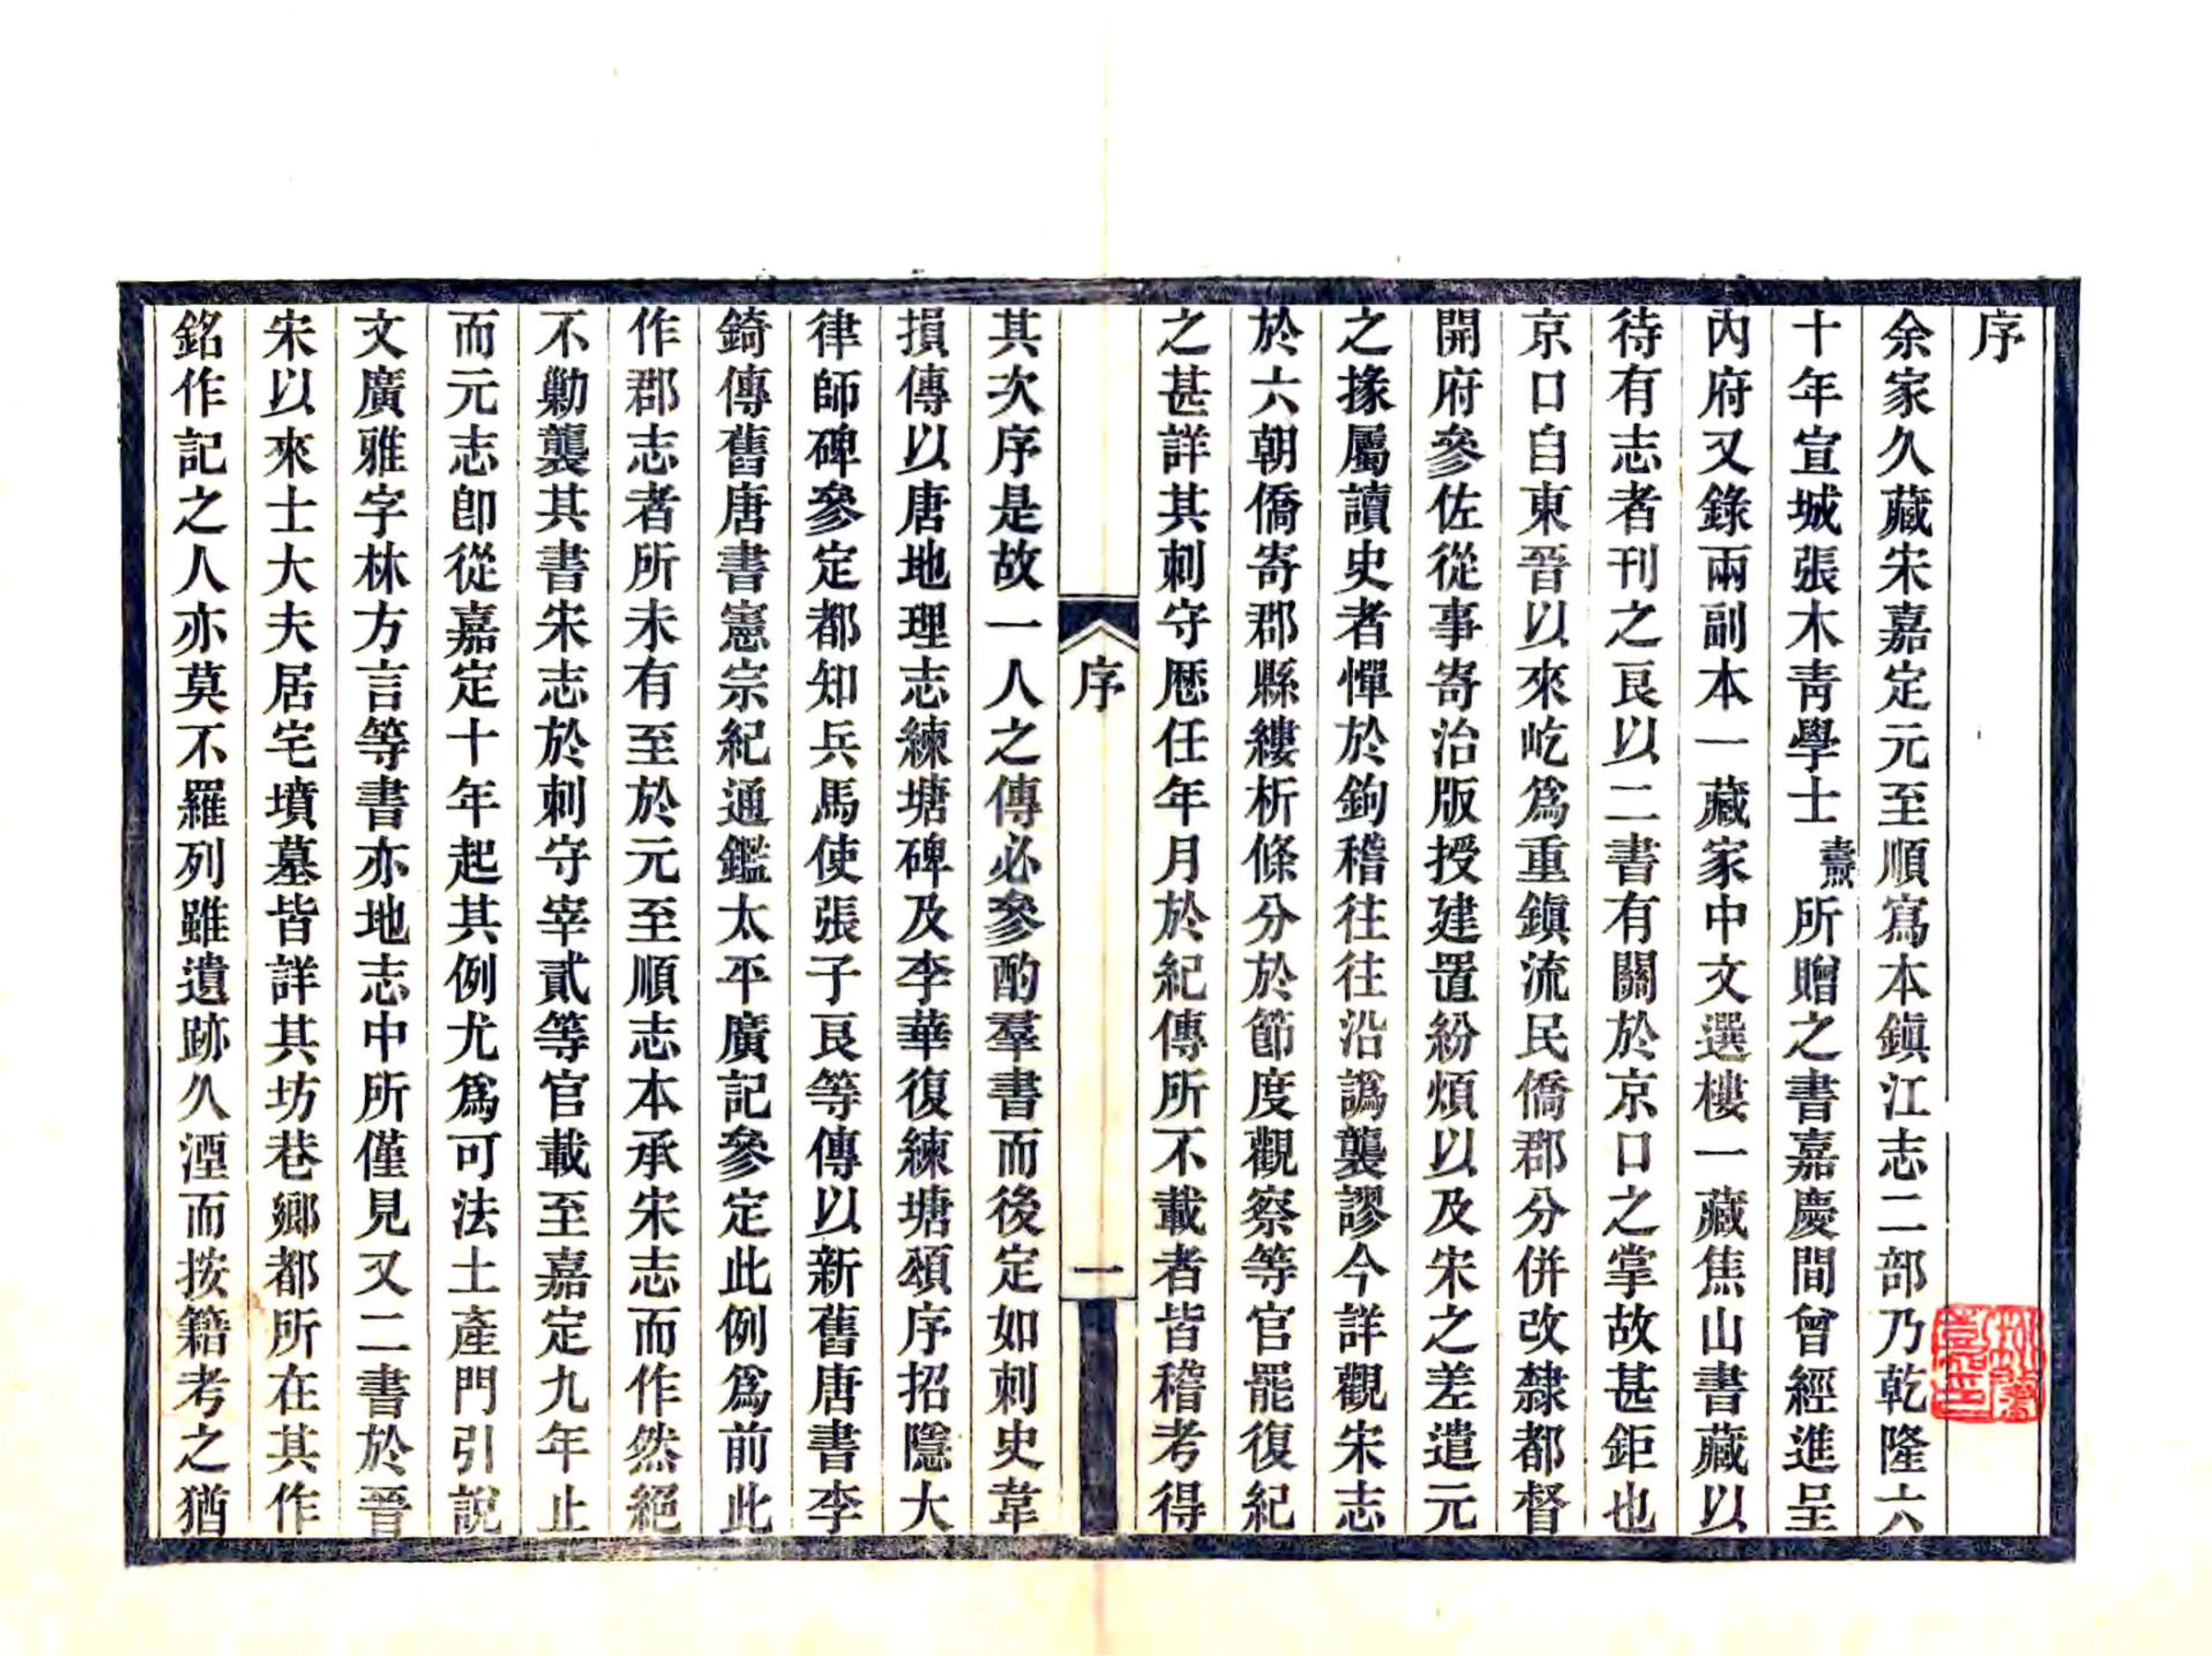 序
余家久藏宋嘉定元至順寫本鎭江志二部乃乾隆六
十年宣城張木靑學士燾所贈之書嘉慶間曾經進呈
內府又錄兩副本一藏家中文選樓一藏焦山書藏以
待有志者刊之良以二書有關於京口之掌故甚鉅也
京口自東晉以來屹爲重鎭流民僑郡分併改隸都督
開府參佐從事寄治版授建置紛煩以及宋之差遣元
之掾屬讀史者憚於鉤稽往往沿譌襲謬今詳觀宋志
於六朝僑寄郡縣縷析條分於節度觀察等官罷復紀
之甚詳其刺守歷任年月於紀傳所不載者皆稽考得
序
一
其次序是故一人之傳必參酌羣書而後定如刺史韋
損傳以唐地理志練塘碑及李華復練塘頌序招隱大
律師碑參定都知兵馬使張子良等傳以新舊唐書李
錡傳舊唐書憲宗紀通鑑太平廣記參定此例爲前此
作郡志者所未有至於元至順志本承宋志而作然絕
不勦襲其書宋志於刺守宰貳等官載至嘉定九年止
而元志卽從嘉定十年起其例尤爲可法土產門引說
文廣雅字林方言等書亦地志中所僅見又二書於晉
宋以來士大夫居宅墳墓皆詳其坊巷鄉都所在其作
銘作記之人亦莫不羅列雖遺跡久湮而按籍考之猶